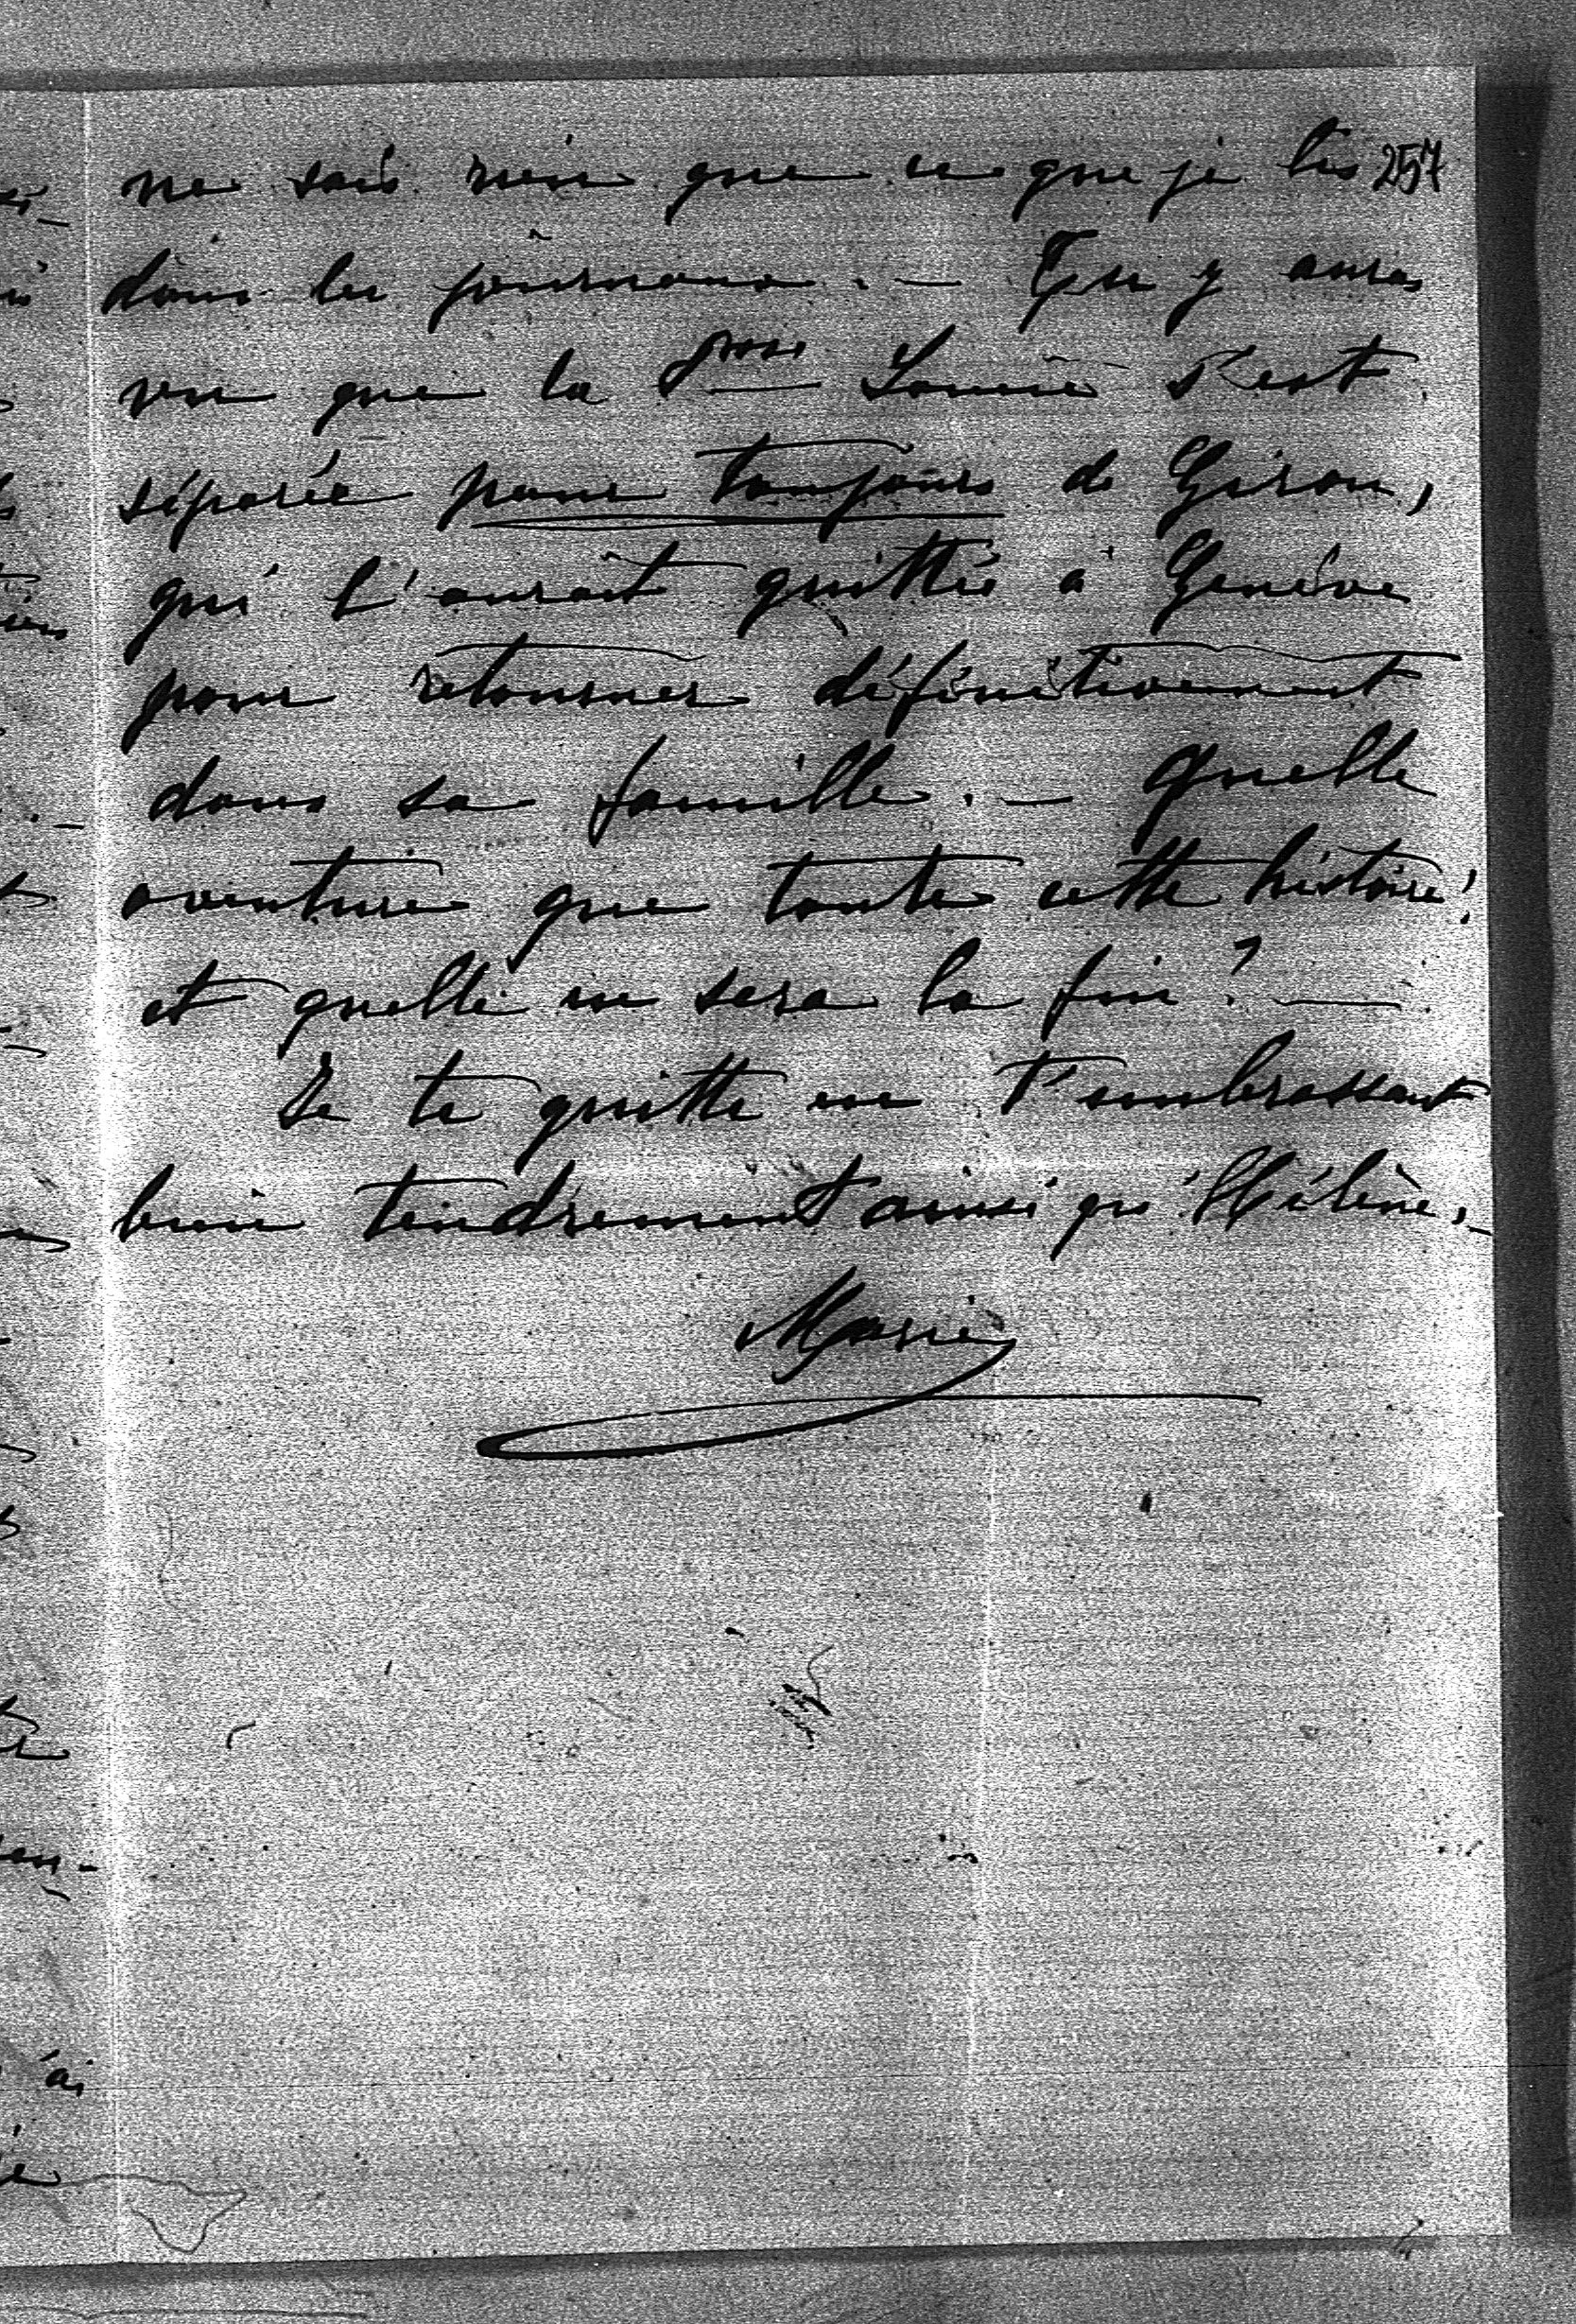 ne sais rien que ce que je lis 257
dans les journaux. — Tu y auras
vu que la Psse Louise s'est
séparée pour toujours de Giron,
qui l'aurait quittée à Genève
pour retourner définitivement
dans sa famille. — Quelle
aventure que toute cette histoire!
et quelle en sera la fin? —
Je te quitte en t'embrassant
bien tendrement ainsi qu'Hélène. —
Marie